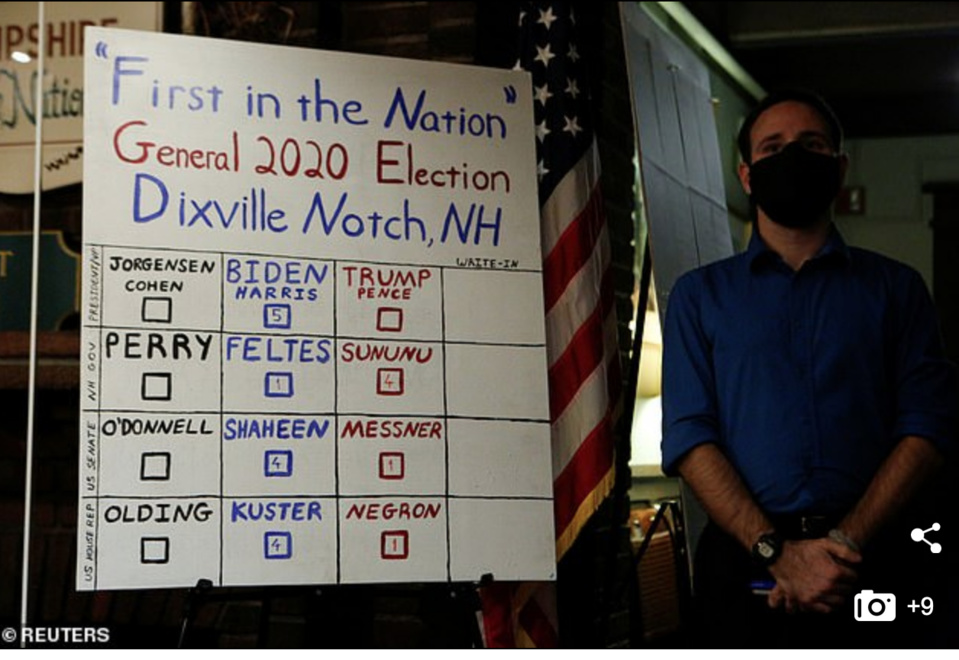 PSHIR
Natio
T
"First in the Nation"
General 2020 Election
Dixville Notch, NH
WRITE-IN
PRESIDENT/VP
JORGENSEN
COHEN
BIDEN
HARRIS
5
TRUMP
PENCE
NH GOV
PERRY
FELTES
1
SUNUNU
4
US SENATE
O'DONNELL
SHAHEEN
4
MESSNER
1
US HOUSE REP
OLDING
KUSTER
4
NEGRON
1
+9
© REUTERS